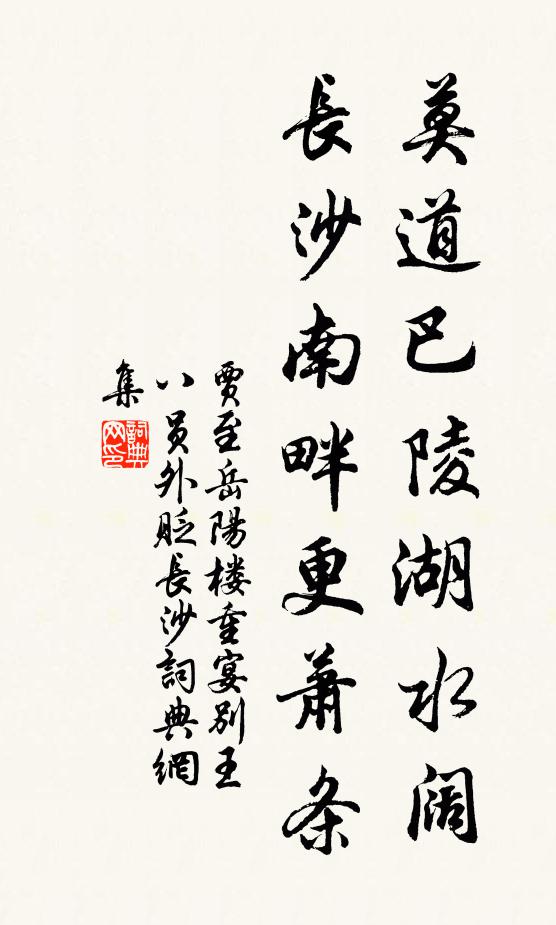 莫道巴陵湖水阔
長沙南畔更萧条
賈至岳陽楼重宴別王
八員外貶長沙詞典網
集
詞典
网印